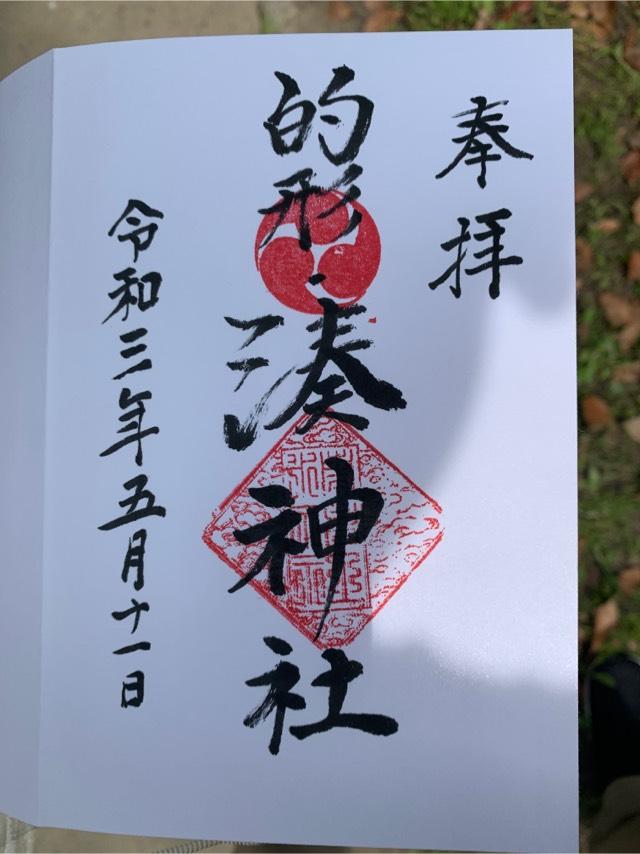 奉拝
的形
湊神社
令和三年五月十一日